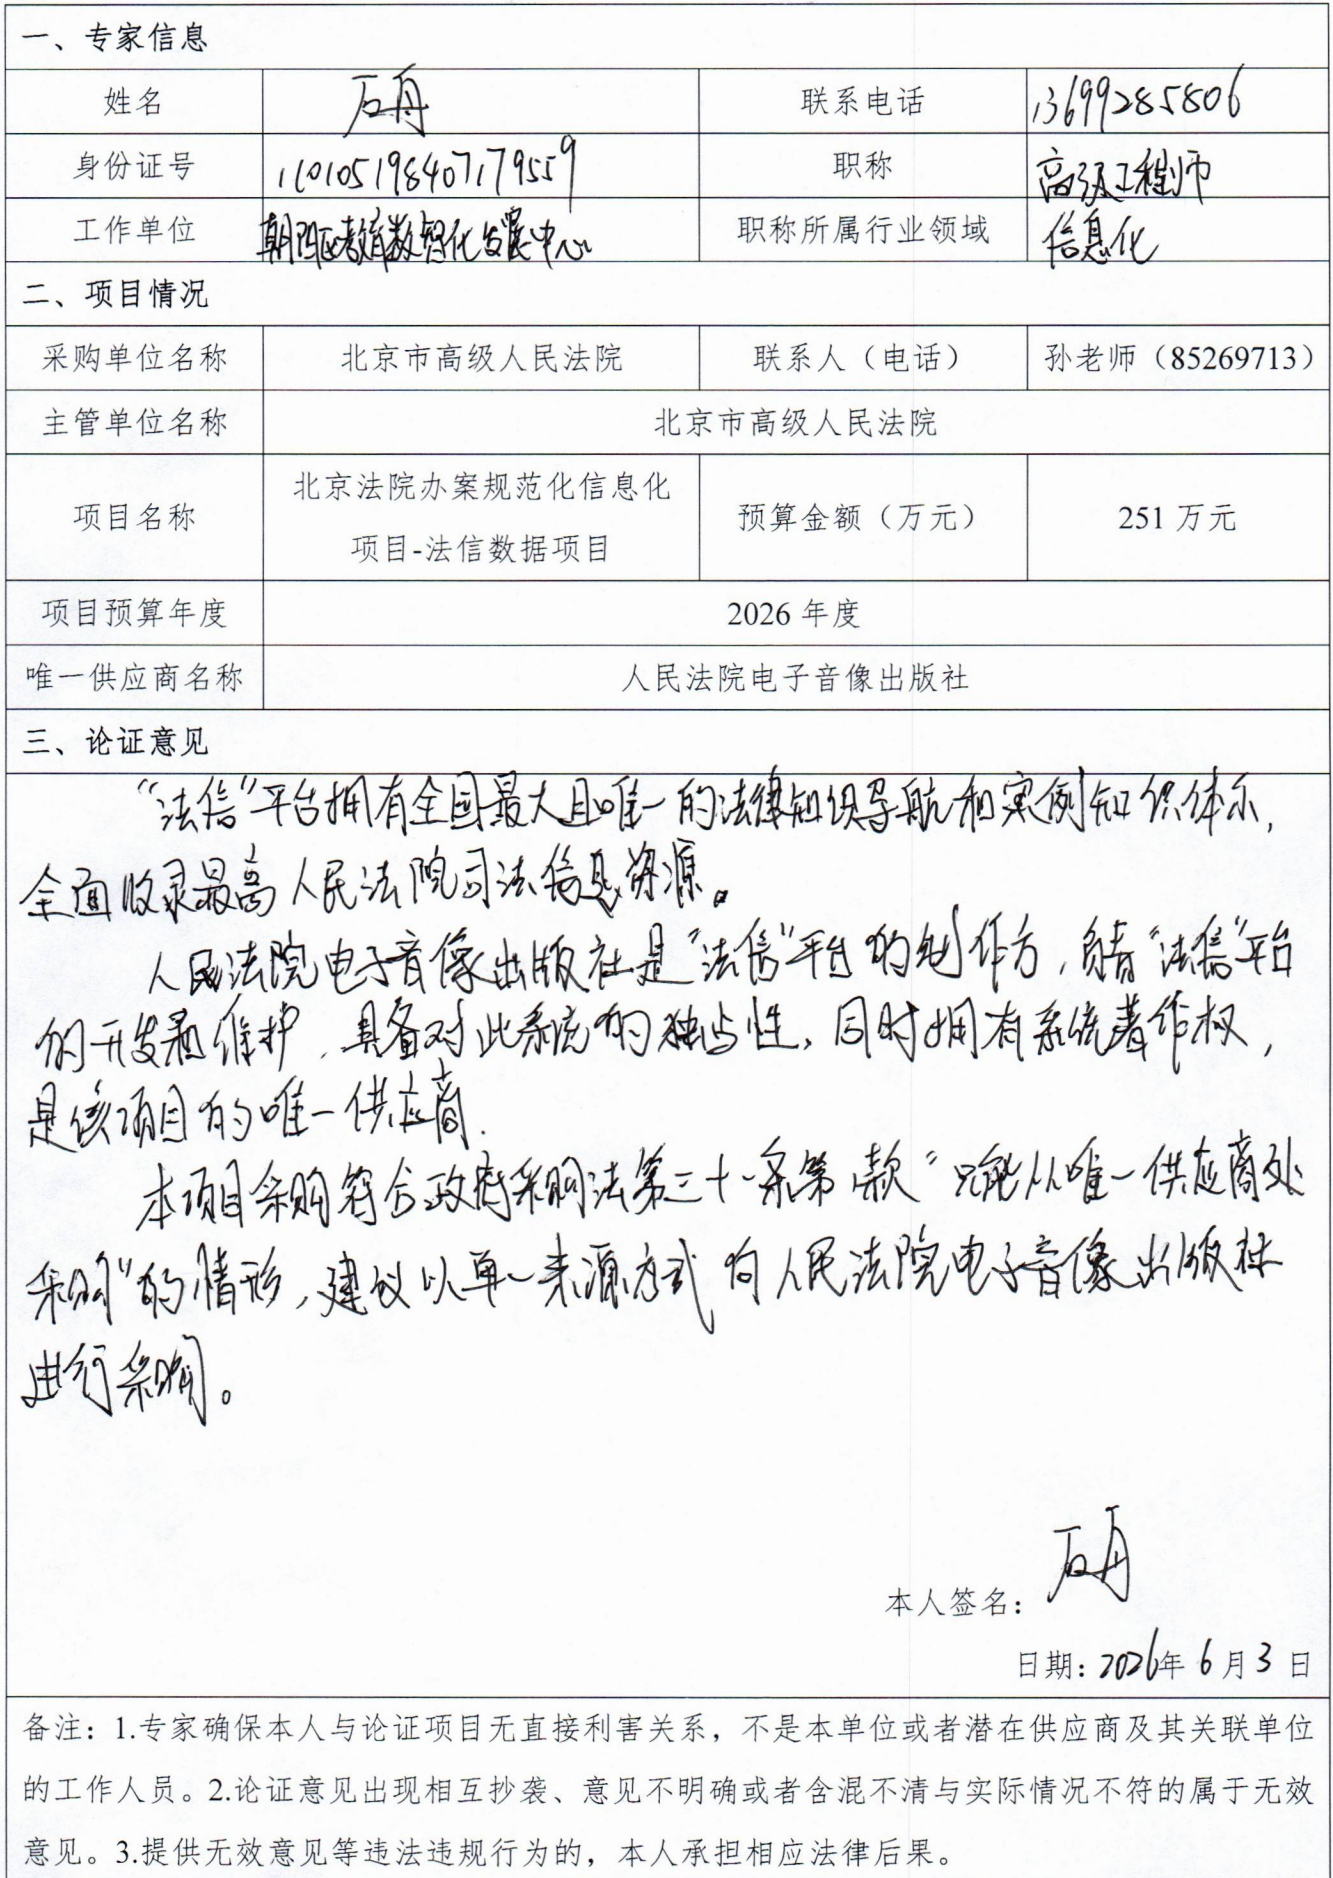 一、专家信息
姓名 石舟 联系电话 13699285806
身份证号 110105198407179559 职称 高级工程师
工作单位 朝阳区教育数智化发展中心 职称所属行业领域 信息化
二、项目情况
采购单位名称 北京市高级人民法院 联系人（电话） 孙老师（85269713）
主管单位名称 北京市高级人民法院
项目名称 北京法院办案规范化信息化
项目-法信数据项目 预算金额（万元） 251 万元
项目预算年度 2026 年度
唯一供应商名称 人民法院电子音像出版社
三、论证意见
“法信”平台拥有全国最大且唯一的法律知识导航和案例知识体系，
全面收录最高人民法院司法信息资源。
人民法院电子音像出版社是“法信”平台的制作方，负责“法信”平台
的开发和维护，具备对此系统的独占性，同时拥有系统著作权，
是该项目的唯一供应商.
本项目采购符合政府采购法第三十一条第一款“只能从唯一供应商处
采购”的情形，建议以单一来源方式向人民法院电子音像出版社
进行采购。
本人签名：石舟
日期：2026年 6 月 3 日
备注：1.专家确保本人与论证项目无直接利害关系，不是本单位或者潜在供应商及其关联单位
的工作人员。2.论证意见出现相互抄袭、意见不明确或者含混不清与实际情况不符的属于无效
意见。3.提供无效意见等违法违规行为的，本人承担相应法律后果。